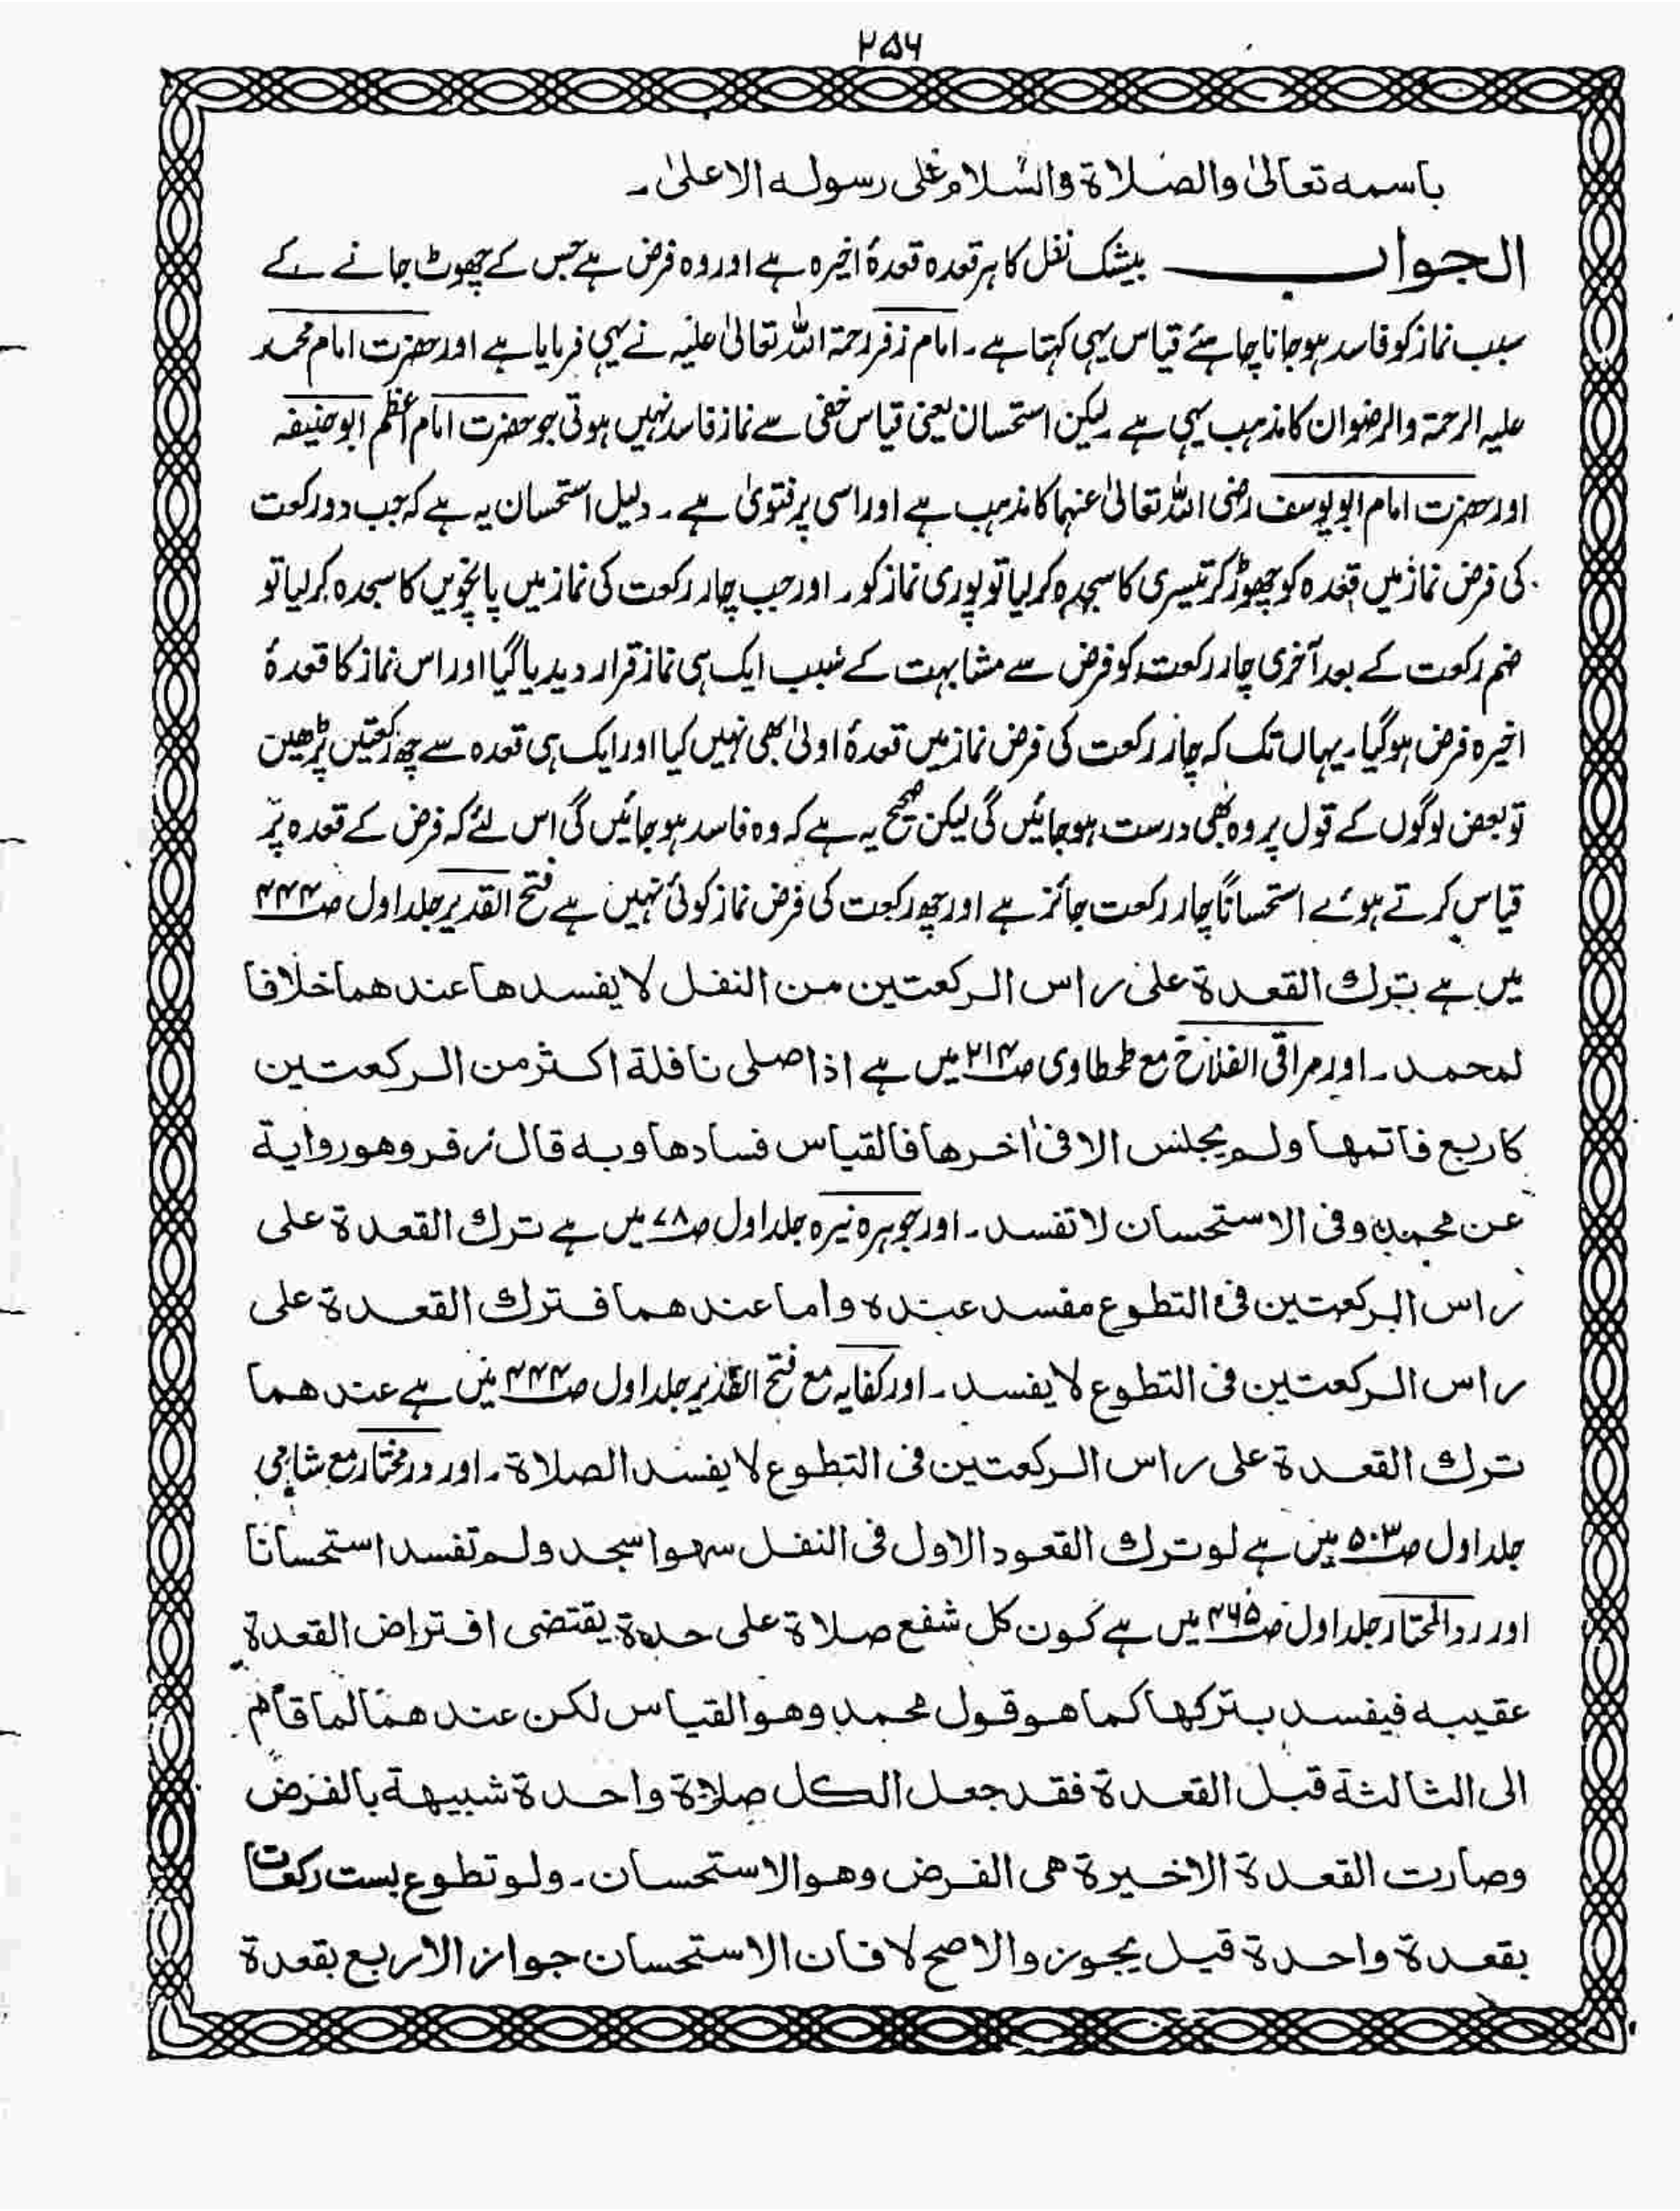 ۲۵۶
باسمہ تعالیٰ والصلاۃ والسلام علی رسولہ الاعلیٰ۔
الجواب ــــــ بیشک نفل کا ہر قعدہ قعدۂ اخیرہ ہے اور وہ فرض ہے جس کے چھوٹ جانے کے
سبب نماز کو فاسد ہو جانا چاہئے قیاس یہی کہتا ہے۔ امام زفر رحمۃ اللہ تعالیٰ علیہ نے یہی فرمایا ہے اور حضرت امام محمد
علیہ الرحمۃ والرضوان کا مذہب یہی ہے لیکن استحسان یعنی قیاس خفی سے نماز فاسد نہیں ہوتی جو حضرت امام اعظم ابوحنیفہ
اور حضرت امام ابویوسف رضی اللہ تعالیٰ عنہما کا مذہب ہے اور اسی پر فتویٰ ہے۔ دلیل استحسان یہ ہے کہ جب دو رکعت
کی فرض نماز میں قعدہ کو چھوڑ کر تیسری کا سجدہ کر لیا تو پوری نماز کو۔ اور جب چار رکعت کی نماز میں پانچویں کا سجدہ کر لیا تو
ضم رکعت کے بعد آخری چار رکعت کو فرض سے مشابہت کے سبب ایک ہی نماز قرار دیدیا گیا اور اس نماز کا قعدۂ
اخیرہ فرض ہو گیا۔ یہاں تک کہ چار رکعت کی فرض نماز میں قعدۂ اولیٰ بھی نہیں کیا اور ایک ہی قعدہ سے چھ رکعتیں پڑھیں
تو بعض لوگوں کے قول پر وہ بھی درست ہو جائیں گی لیکن صحیح یہ ہے کہ وہ فاسد ہو جائیں گی اس لئے کہ فرض کے قعدہ پر
قیاس کرتے ہوئے استحساناً چار رکعت جائز ہے اور چھ رکعت کی فرض نماز کوئی نہیں ہے فتح القدیر جلد اول صـ ۴۴۴
میں ہے بترك القعدة علی راس الرکعتین من النفل لا یفسدها عندهما خلافا
لمحمد۔ اور مراقی الفلاح مع طحطاوی صـ ۲۱۴ میں ہے اذا صلی نافلة اکثر من الرکعتین
کاربع فاتمها ولم یجلس الا فی اخرها فالقیاس فسادها وبه قال زفر وهو روایة
عن محمد وفی الاستحسان لا تفسد۔ اور جوہرہ نیرہ جلد اول صـ ۷۸ میں ہے ترك القعدة علی
راس الرکعتین فی التطوع مفسد عنده واما عندهما فترك القعدة علی
راس الرکعتین فی التطوع لا یفسد۔ اور کفایہ مع فتح القدیر جلد اول صـ ۴۴۴ میں ہے عندهما
ترك القعدة علی راس الرکعتین فی التطوع لا یفسد الصلاة۔ اور درمختار مع شامی
جلد اول صـ ۵۰۳ میں ہے لو ترك القعود الاول فی النفل سهوا سجد ولم تفسد استحسانا
اور ردالمحتار جلد اول صـ ۴۶۵ میں ہے کون کل شفع صلاة علی حدة یقتضی افتراض القعدة
عقیبه فیفسد بترکها کما هو قول محمد وهو القیاس لکن عندهما لما قام
الی الثالثة قبل القعدة فقد جعل الکل صلاة واحدة شبیهة بالفرض
وصارت القعدة الاخیرة هی الفرض وهو الاستحسان۔ ولو تطوع بست رکعات
بقعدة واحدة قیل یجوز والاصح لا فان الاستحسان جواز الاربع بقعدة